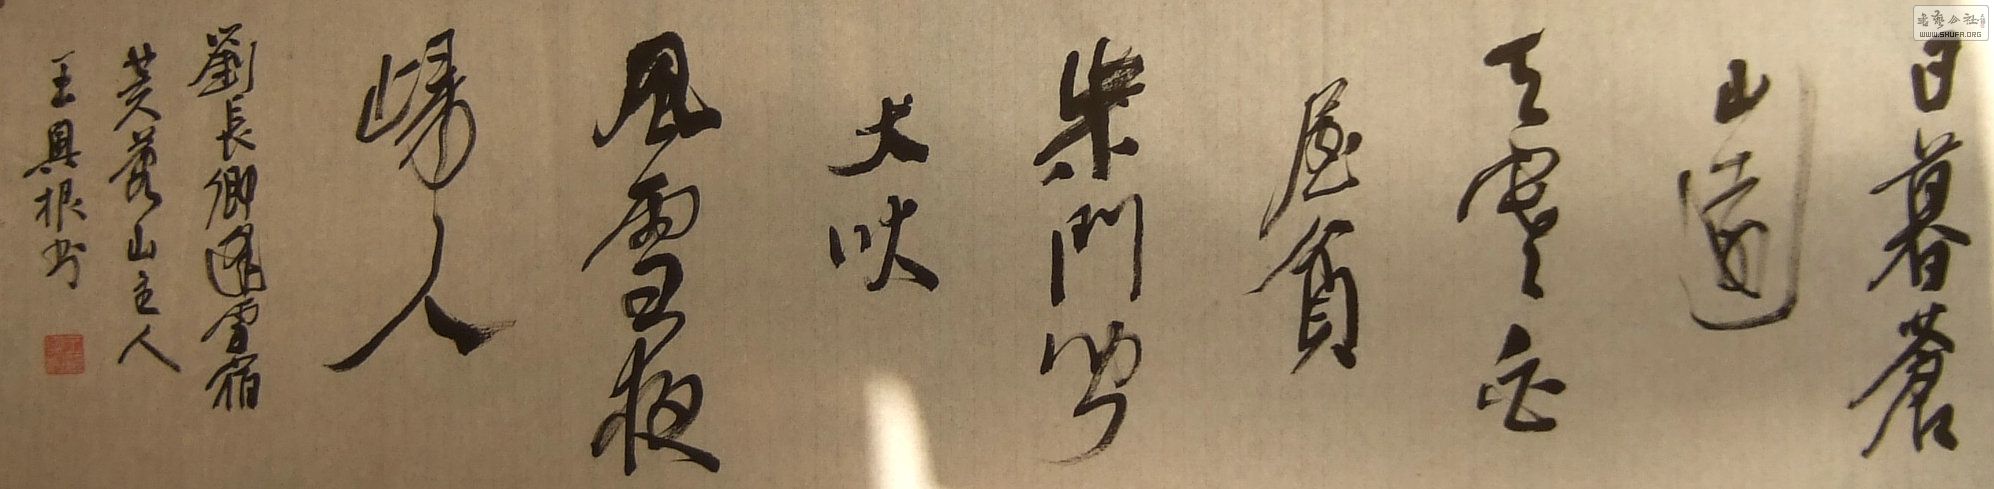 日暮蒼
山遠
天寒白
屋貧
柴門聞
犬吠
風雪夜
歸人
劉長卿逢雪宿
芙蓉山主人
王具根书
WWW.SHUFA.ORG